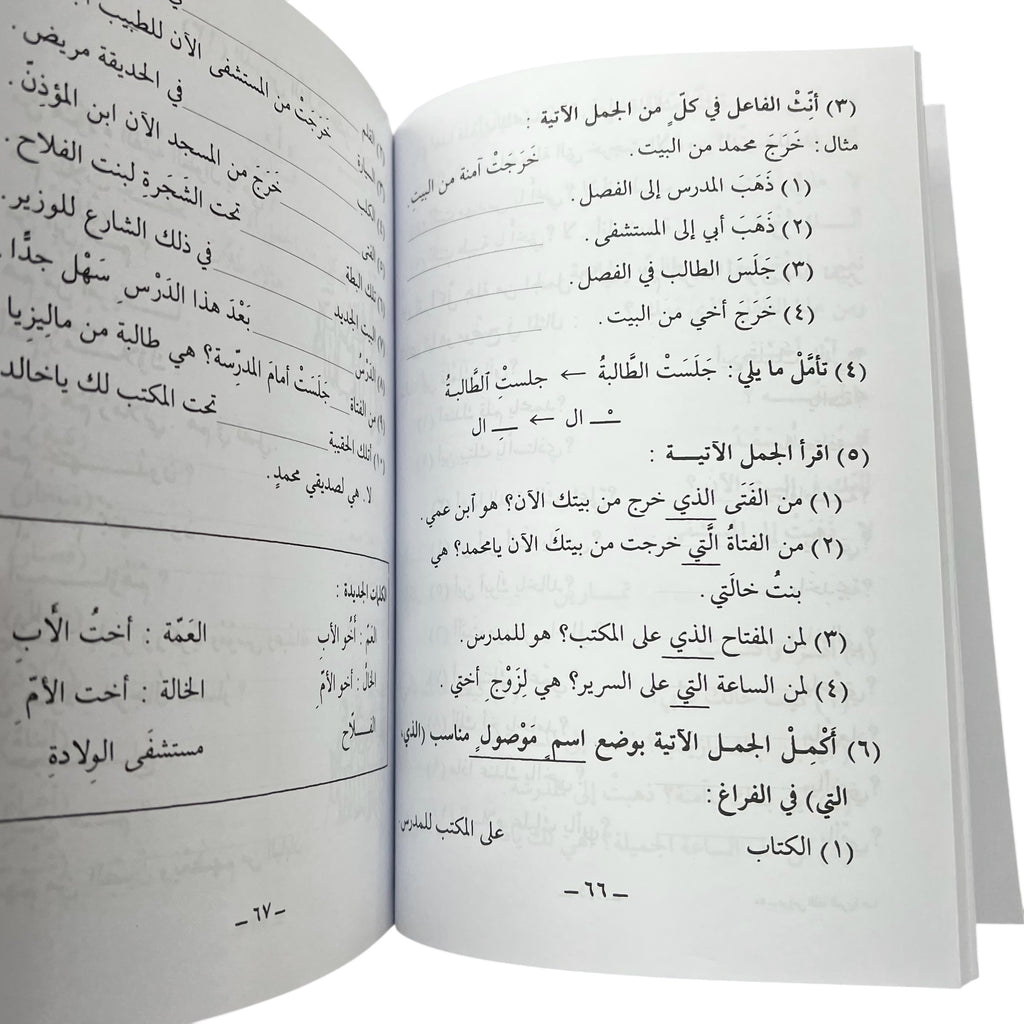 (٣) أنِّثْ الفاعل في كلٍّ من الجمل الآتية :
مثال : خَرَجَ محمد من البيت. خَرَجَتْ آمنة من البيتِ.
(١) ذَهَبَ المدرس إلى الفصل.
(٢) ذَهَبَ أبي إلى المستشفى.
(٣) جَلَسَ الطالب في الفصل.
(٤) خَرَجَ أخي من البيت.
(٤) تأمَّلْ ما يلي : جَلَسَتْ الطَّالبةُ ← جلستِ ٱلطَّالبةُ
ـْ ال ← ـِ ال
(٥) اقرأ الجمل الآتيـــة :
(١) من الفَتَى الذي خرج من بيتك الآن؟ هو ٱبن عمي.
(٢) من الفتاةُ الَّتي خرجت من بيتكَ الآن يامحمد؟ هي
بنتُ خالَتي.
(٣) لمن المفتاح الذي على المكتب؟ هو للمدرس.
(٤) لمن الساعة التي على السرير؟ هي لِزَوْجِ أختي.
(٦) أَكْمِلْ الجمـل الآتية بوضع اسمٍ مَوْصولٍ مناسب (الذي،
التي) في الفراغ :
(١) الكتاب على المكتب للمدرس.
— ٦٦ —
(٢) القلم
(٣) السيارة خَرَجَتْ من المستشفى الآن للطبيب
(٤) الكلب في الحديقة مريض.
(٥) الفتى خَرَجَ من المسجد الآن ابن المؤذِنّ.
(٦) تلك البطة تحت الشَجَرةِ لبنت الفلاح.
(٧) البيت الجديد في ذلك الشارع للوزير.
(٨) الدَرْسُ بَعْدَ هذا الدَرْسِ سَهْل جدًّا.
(٩) من الفتاة جَلَسَتْ أمامَ المدرّسة؟ هي طالبة من ماليِزِيا
(١٠) أتلك الحقيبة تحت المكتب لك ياخالد
لا. هي لصديقي محمدٍ.
الكلمات الجديدة :
العَمّ : أَخُو الأبِ العَمّة : أختُ الأَبِ
الخالُ : أخو الأمِّ الخالة : أخت الأمّ
الفـلاّح مستشفَى الوِلادةِ
— ٦٧ —